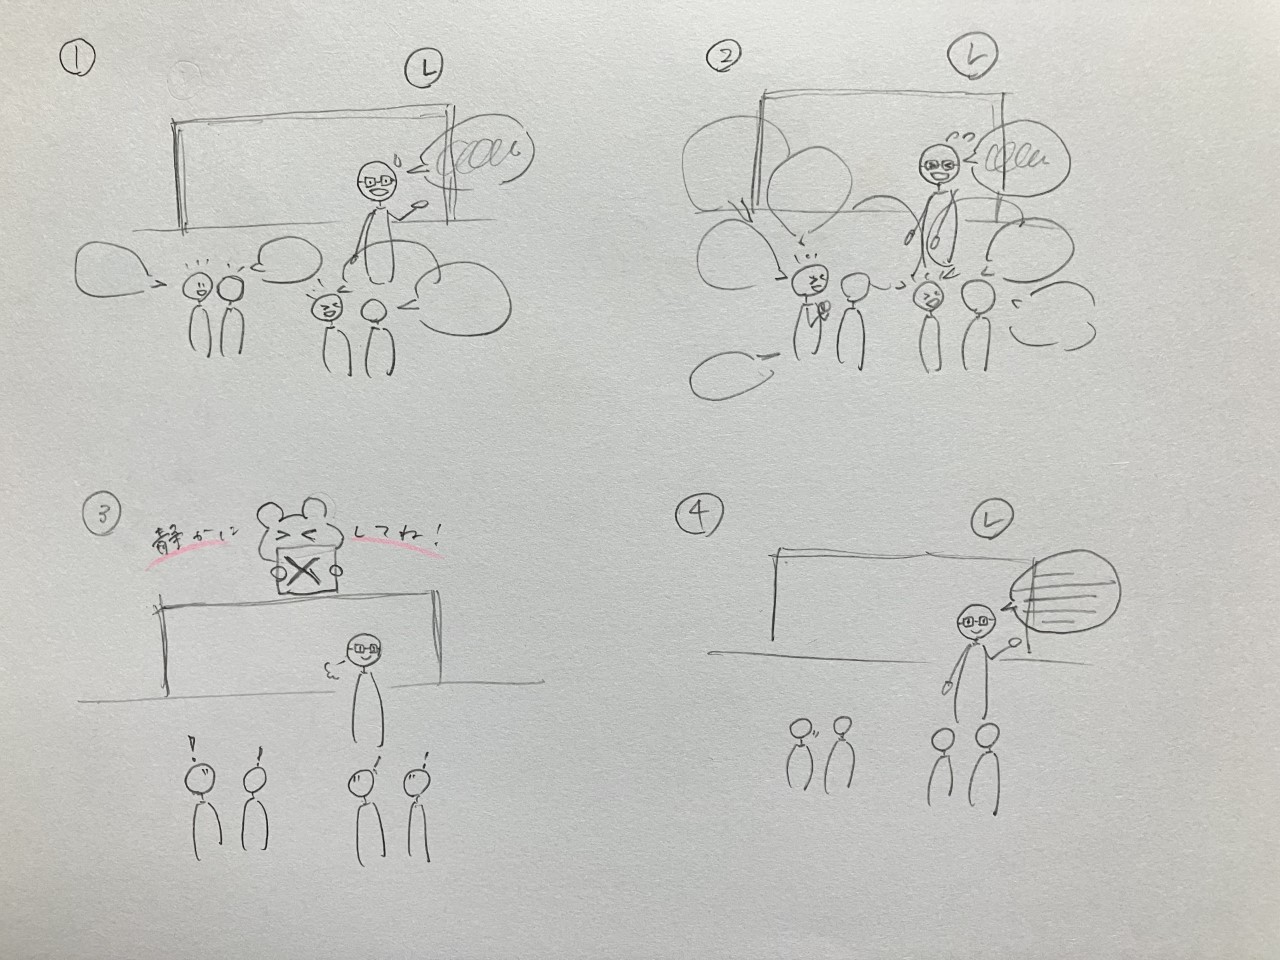 ①
②
③
静かに してね!
④